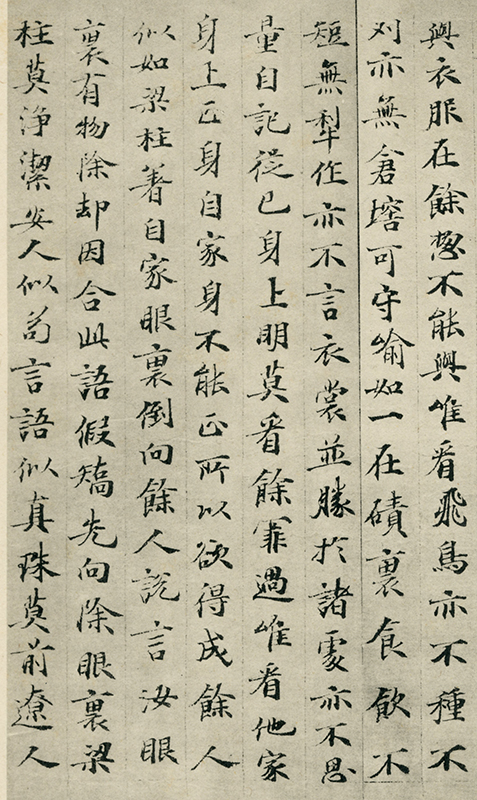 與衣服在餘惣不能與唯看飛鳥亦不種不
刈亦無倉塔可守喻如一在磧裏食飲不
短無犁作亦不言衣裳並勝於諸處亦不思
量自記從己身上明莫看餘罪過唯看他家
身上正身自家身不能正所以欲得成餘人
似如梁柱著自家眼裏倒向餘人說言汝眼
裏有物除却因合此語假矯先向除眼裏梁
柱莫淨潔安人似苟言語似真珠莫前遼人